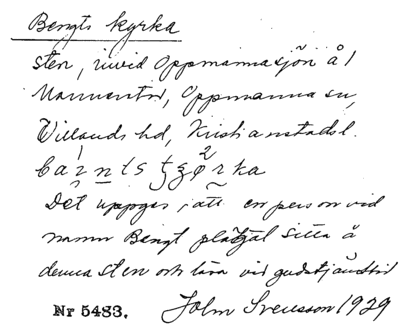 Bengts kyrka
sten, invid Oppmannasjön å
Oppmanna sn,
Villands hd, Kristianstads l.
Det uppges, att en person vid
namn Bengt plägat sitta å
denna sten och vid gudstjänsttid
Nr 5483. John Svensson 1929